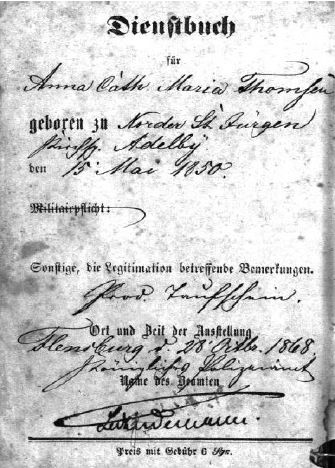 Dienstbuch
für
Anna Cath Maria Thomsen
geboren zu Norder St. Jürgen
Kirchsp. Adelby
den 15 Mai 1850.
Militairpflicht:
Sonstige, die Legitimation betreffende Bemerkungen.
Prod. Taufschein.
Ort und Zeit der Ausstellung
Flensburg d. 28 Octbr. 1868
Königliches Polizeiamt
Name des Beamten
Preis mit Gebühr 6 Sgr.